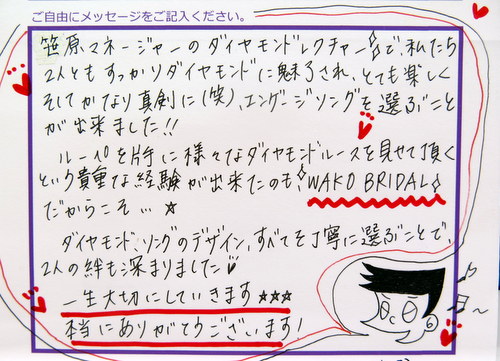 ご自由にメッセージをご記入ください。
笹原マネージャーのダイヤモンドレクチャー✧で、私たち
2人ともすっかりダイヤモンドに魅了され、とても楽しく
そしてかなり真剣に(笑)、エンゲージリングを選ぶこと
が出来ました!!
ルーペを片手に様々なダイヤモンドルースを見せて頂く
という貴重な経験が出来たのも、✧WAKO BRIDAL✧
だからこそ…☆
ダイヤモンド、リングのデザイン、すべてを丁寧に選ぶことで、
2人の絆も深まりました♡
一生大切にしていきます☆☆☆
本当にありがとうございます!